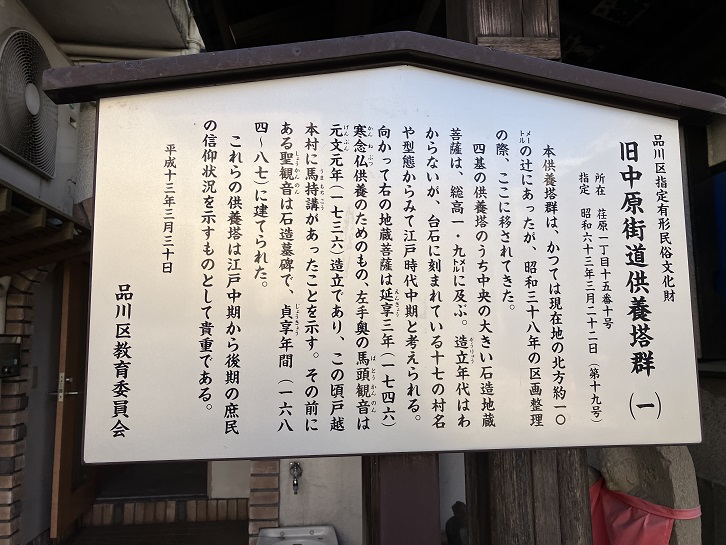 品川区指定有形民俗文化財
旧中原街道供養塔群(一)
所在 荏原一丁目十五番十号
指定 昭和六十三年三月二十二日(第十九号)
本供養塔群は、かつては現在地の北方約一〇
メートルの辻にあったが、昭和三十八年の区画整理
の際、ここに移されてきた。
四基の供養塔のうち中央の大きい石造地蔵
菩薩は、総高一・九メートルに及ぶ。造立年代はわ
からないが、台石に刻まれている十七の村名
や型態からみて江戸時代中期と考えられる。
向かって右の地蔵菩薩は延享三年(一七四六)
寒念仏供養のためのもの、左手奥の馬頭観音は
元文元年(一七三六)造立であり、この頃戸越
本村に馬持講があったことを示す。その前に
ある聖観音は石造墓碑で、貞享年間(一六八
四〜八七)に建てられた。
これらの供養塔は江戸中期から後期の庶民
の信仰状況を示すものとして貴重である。
平成十三年三月三十日
品川区教育委員会